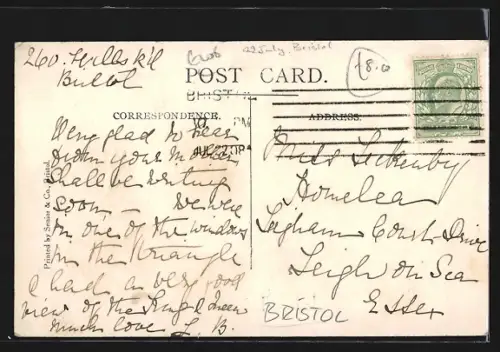 260.
Bristol
22 July. Bristol
£8.0
POST CARD.
BRISTOL
PM
JUL 22 08
CORRESPONDENCE.
ADDRESS.
Very glad to hear
from your Mother
Shall be writing
soon — We were
in one of the windows
in the triangle
& had a very good
view of the King & Queen
much love L. B.
Printed by Senior & Co., Bristol.
Miss
Homelea
Leigham Court Drive
Leigh on Sea
Essex
BRISTOL